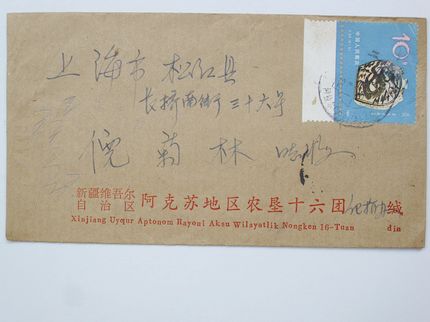 10分
中国人民邮政
上海市 松江县
长桥南街三十六号
倪菊林
新疆维吾尔
自治区 阿克苏地区农垦十六团 缄
Xinjiang Uyƣur Aptonom Rayoni Aksu Wilayatlik Nongken 16-Tuan din